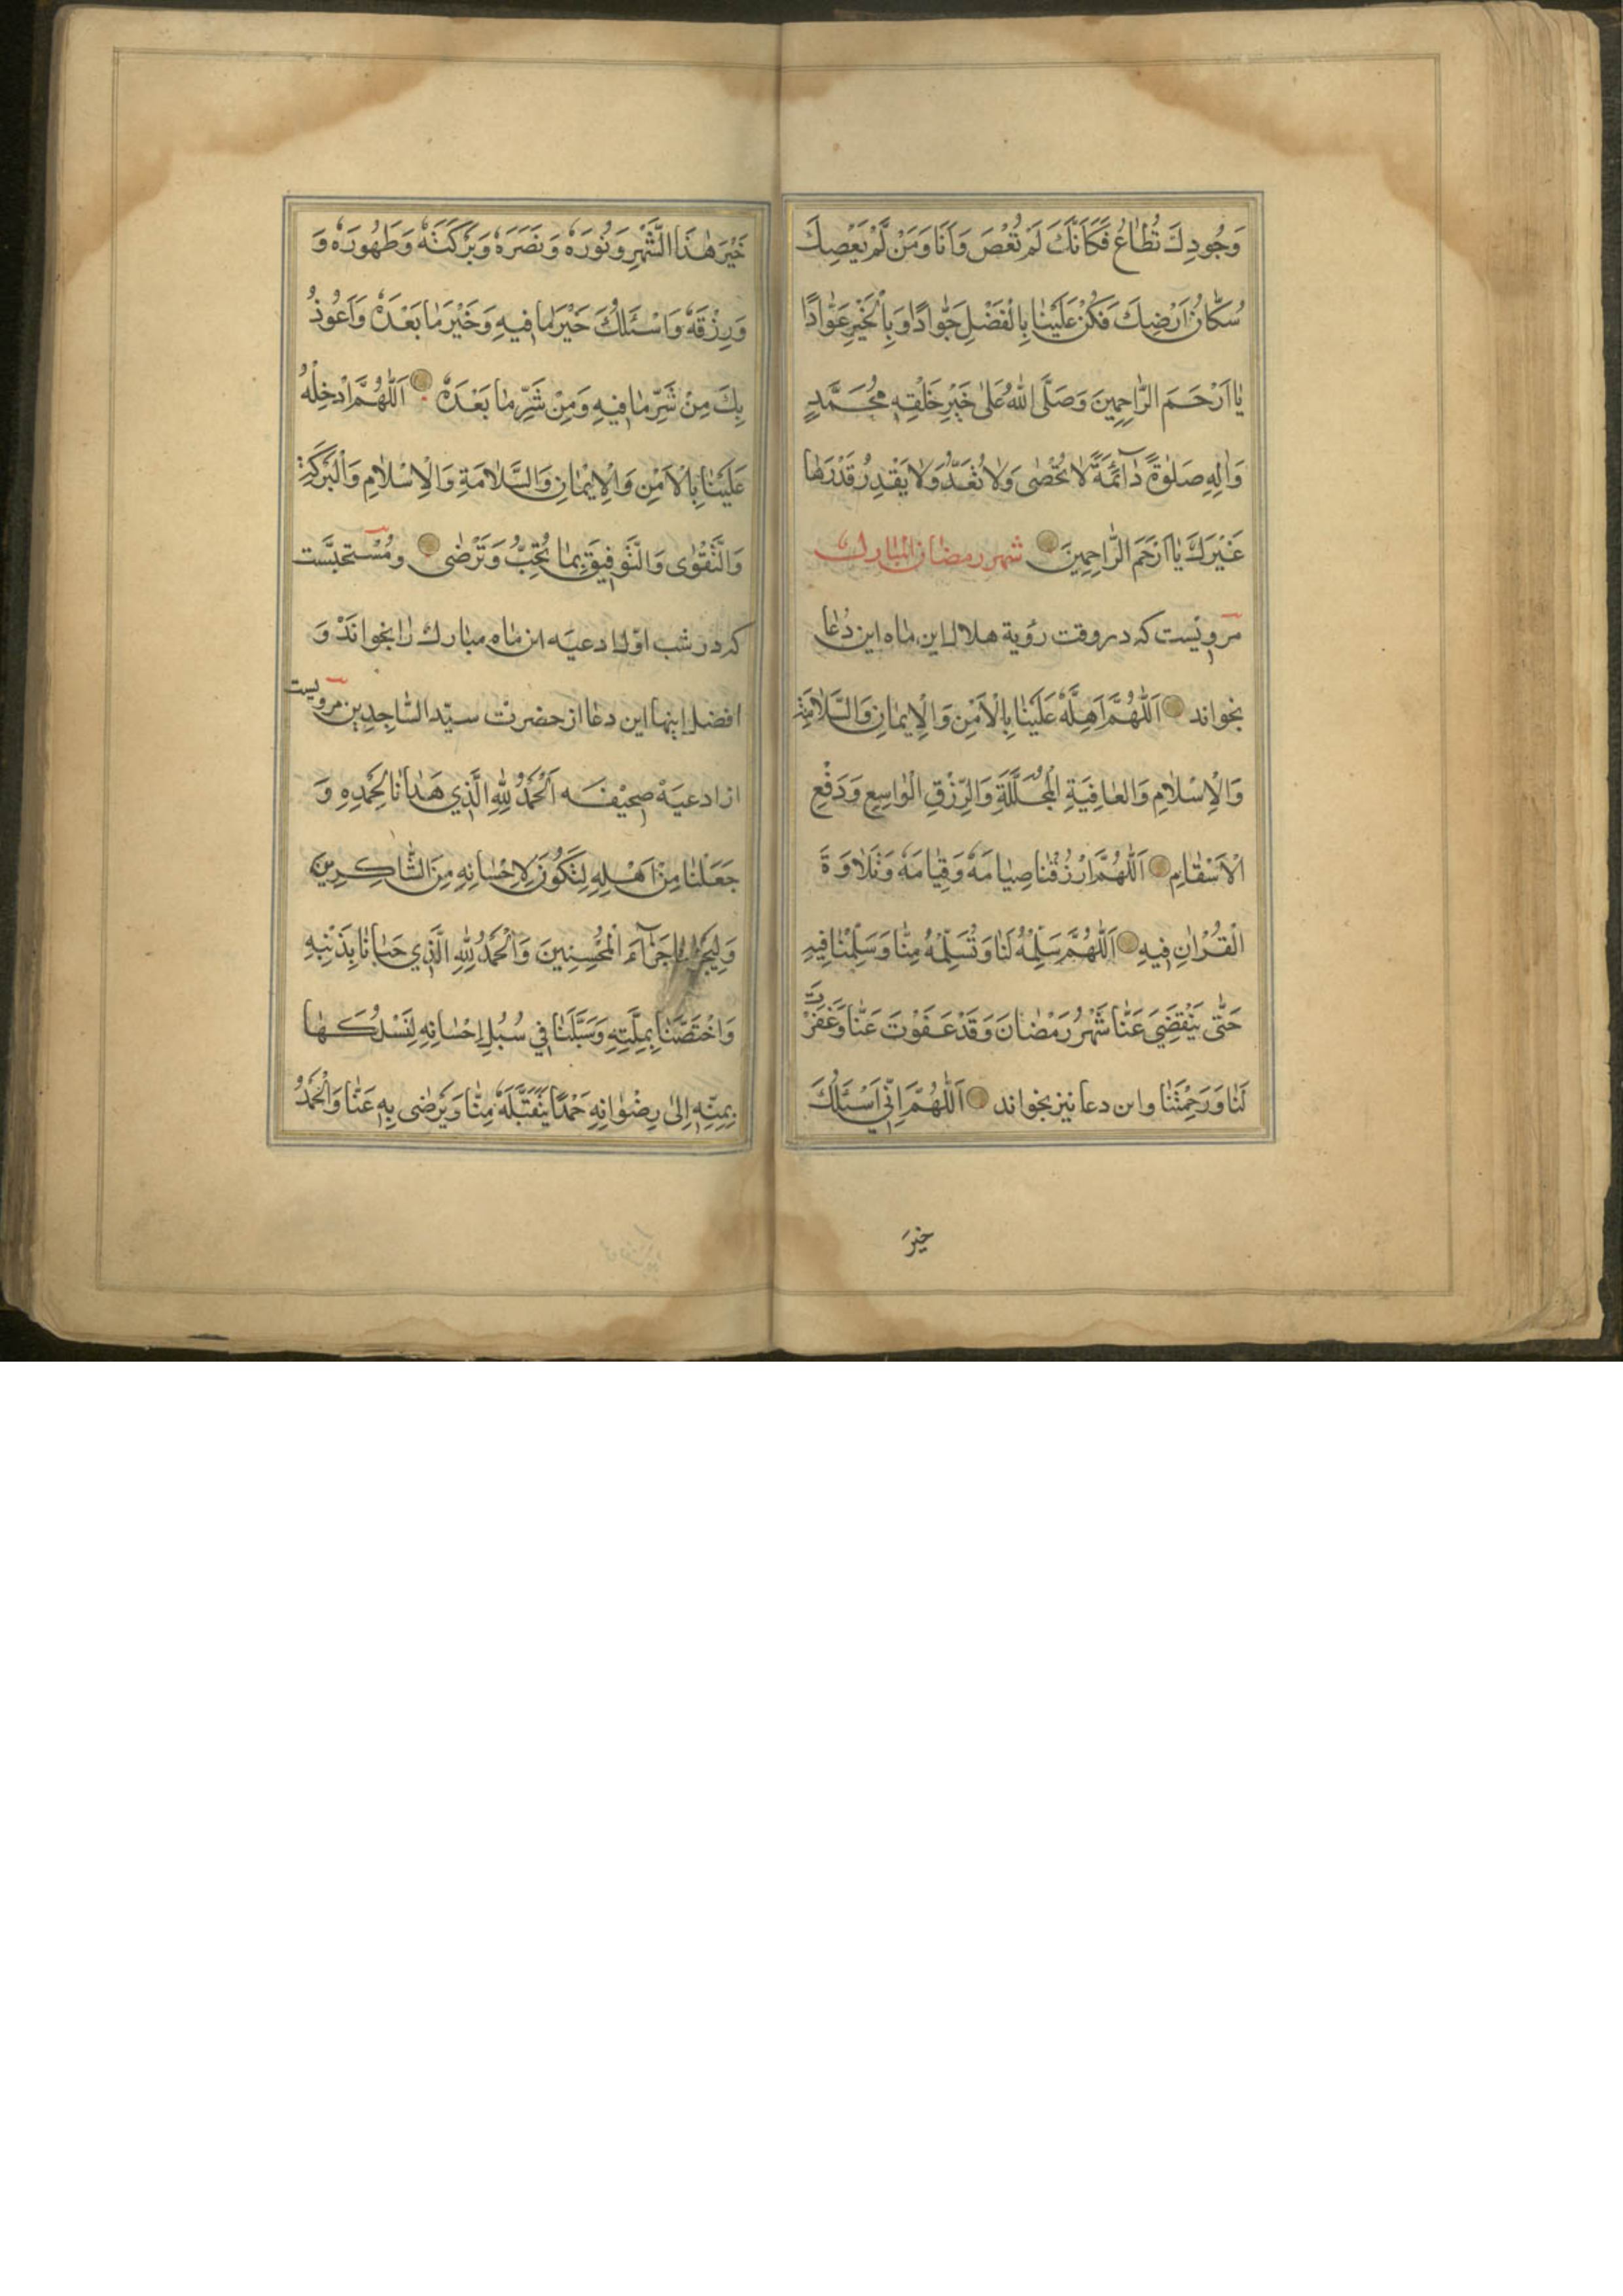 وَجُودِكَ تُطَاعُ فَكَاَنَّكَ لَمْ تُعْصَ وَاَنَا وَمَنْ لَمْ يَعْصِكَ
سُكَّانُ اَرْضِكَ فَكُنْ عَلَيْنَا بِالْفَضْلِ جَوَّادًا وَبِالْخَيْرِ عَوَّادًا
يَا اَرْحَمَ الرَّاحِمِينَ وَصَلَّى اللّٰهُ عَلٰى خَيْرِ خَلْقِهِ مُحَمَّدٍ
وَاٰلِهِ صَلٰوةً دَآئِمَةً لَا تُحْصٰى وَلَا تُعَدُّ وَلَا يَقْدِرُ قَدْرَهَا
غَيْرُكَ يَا اَرْحَمَ الرَّاحِمِينَ شهر رمضان المبارك
مرويست كه در وقت رؤية هلال اين ماه اين دُعا
بخواند اَللّٰهُمَّ اَهِلَّهُ عَلَيْنَا بِالْاَمْنِ وَالْاِيمَانِ وَالسَّلَامَةِ
وَالْاِسْلَامِ وَالْعَافِيَةِ الْمُجَلَّلَةِ وَالرِّزْقِ الْوَاسِعِ وَدَفْعِ
الْاَسْقَامِ اَللّٰهُمَّ ارْزُقْنَا صِيَامَهُ وَقِيَامَهُ وَتَلَاوَةَ
الْقُرْاٰنِ فِيهِ اَللّٰهُمَّ سَلِّمْهُ لَنَا وَتُسَلِّمْهُ مِنَّا وَسَلِّمْنَا فِيهِ
حَتّٰى يَنْقَضِيَ عَنَّا شَهْرُ رَمْضَانَ وَقَدْ عَفَوْتَ عَنَّا وَغَفَرْتَ
لَنَا وَرَحِمْتَنَا واين دعا نيز بخواند اَللّٰهُمَّ اِنِّي اَسْئَلُكَ
خيرَ
خَيْرَ هٰذَا الشَّهْرِ وَنُورَهُ وَنَصَرَهُ وَبَرَكَتَهُ وَطَهُورَهُ وَ
وَرِزْقَهُ وَاَسْئَلُكَ خَيْرَ مَا فِيهِ وَخَيْرَ مَا بَعْدَهُ وَاَعُوذُ
بِكَ مِنْ شَرِّ مَا فِيهِ وَمِنْ شَرِّ مَا بَعْدَهُ اَللّٰهُمَّ اَدْخِلْهُ
عَلَيْنَا بِالْاَمْنِ وَالْاِيمَانِ وَالسَّلَامَةِ وَالْاِسْلَامِ وَالْبَرَكَةِ
وَالتَّقْوٰى وَالتَّوْفِيقِ بِمَا تُحِبُّ وَتَرْضٰى ومُسْتحبَّست
كه در شب اوّل ادعيَه اين ماه مبارك را بخوانَدْ وَ
افضل اينها اين دعا از حضرت سيّد السَّاجِدِين مرويست
از ادعيَهٔ صحيْفَه اَلْحَمْدُ لِلّٰهِ الَّذِي هَدَانَا لِحَمْدِهِ وَ
جَعَلْنَا مِنْ اَهْلِهِ لِنَكُونَ لِاِحْسَانِهِ مِنَ الشَّاكِرِينَ
وَلِيَجْزِيَنَا جَزَآءَ الْمُحْسِنِينَ وَالْحَمْدُ لِلّٰهِ الَّذِي حَبَانَا بِدَيْنِهِ
وَاخْتَصَّنَا بِمِلَّتِهِ وَسَبَّلَنَا فِي سُبُلِ اِحْسَانِهِ لِنَسْلُكَهَا
بِمِنِّهِ اِلٰى رِضْوَانِهِ حَمْدًا يَتَقَبَّلَهُ مِنَّا وَيَرْضٰى بِهِ عَنَّا وَالْحَمْدُ